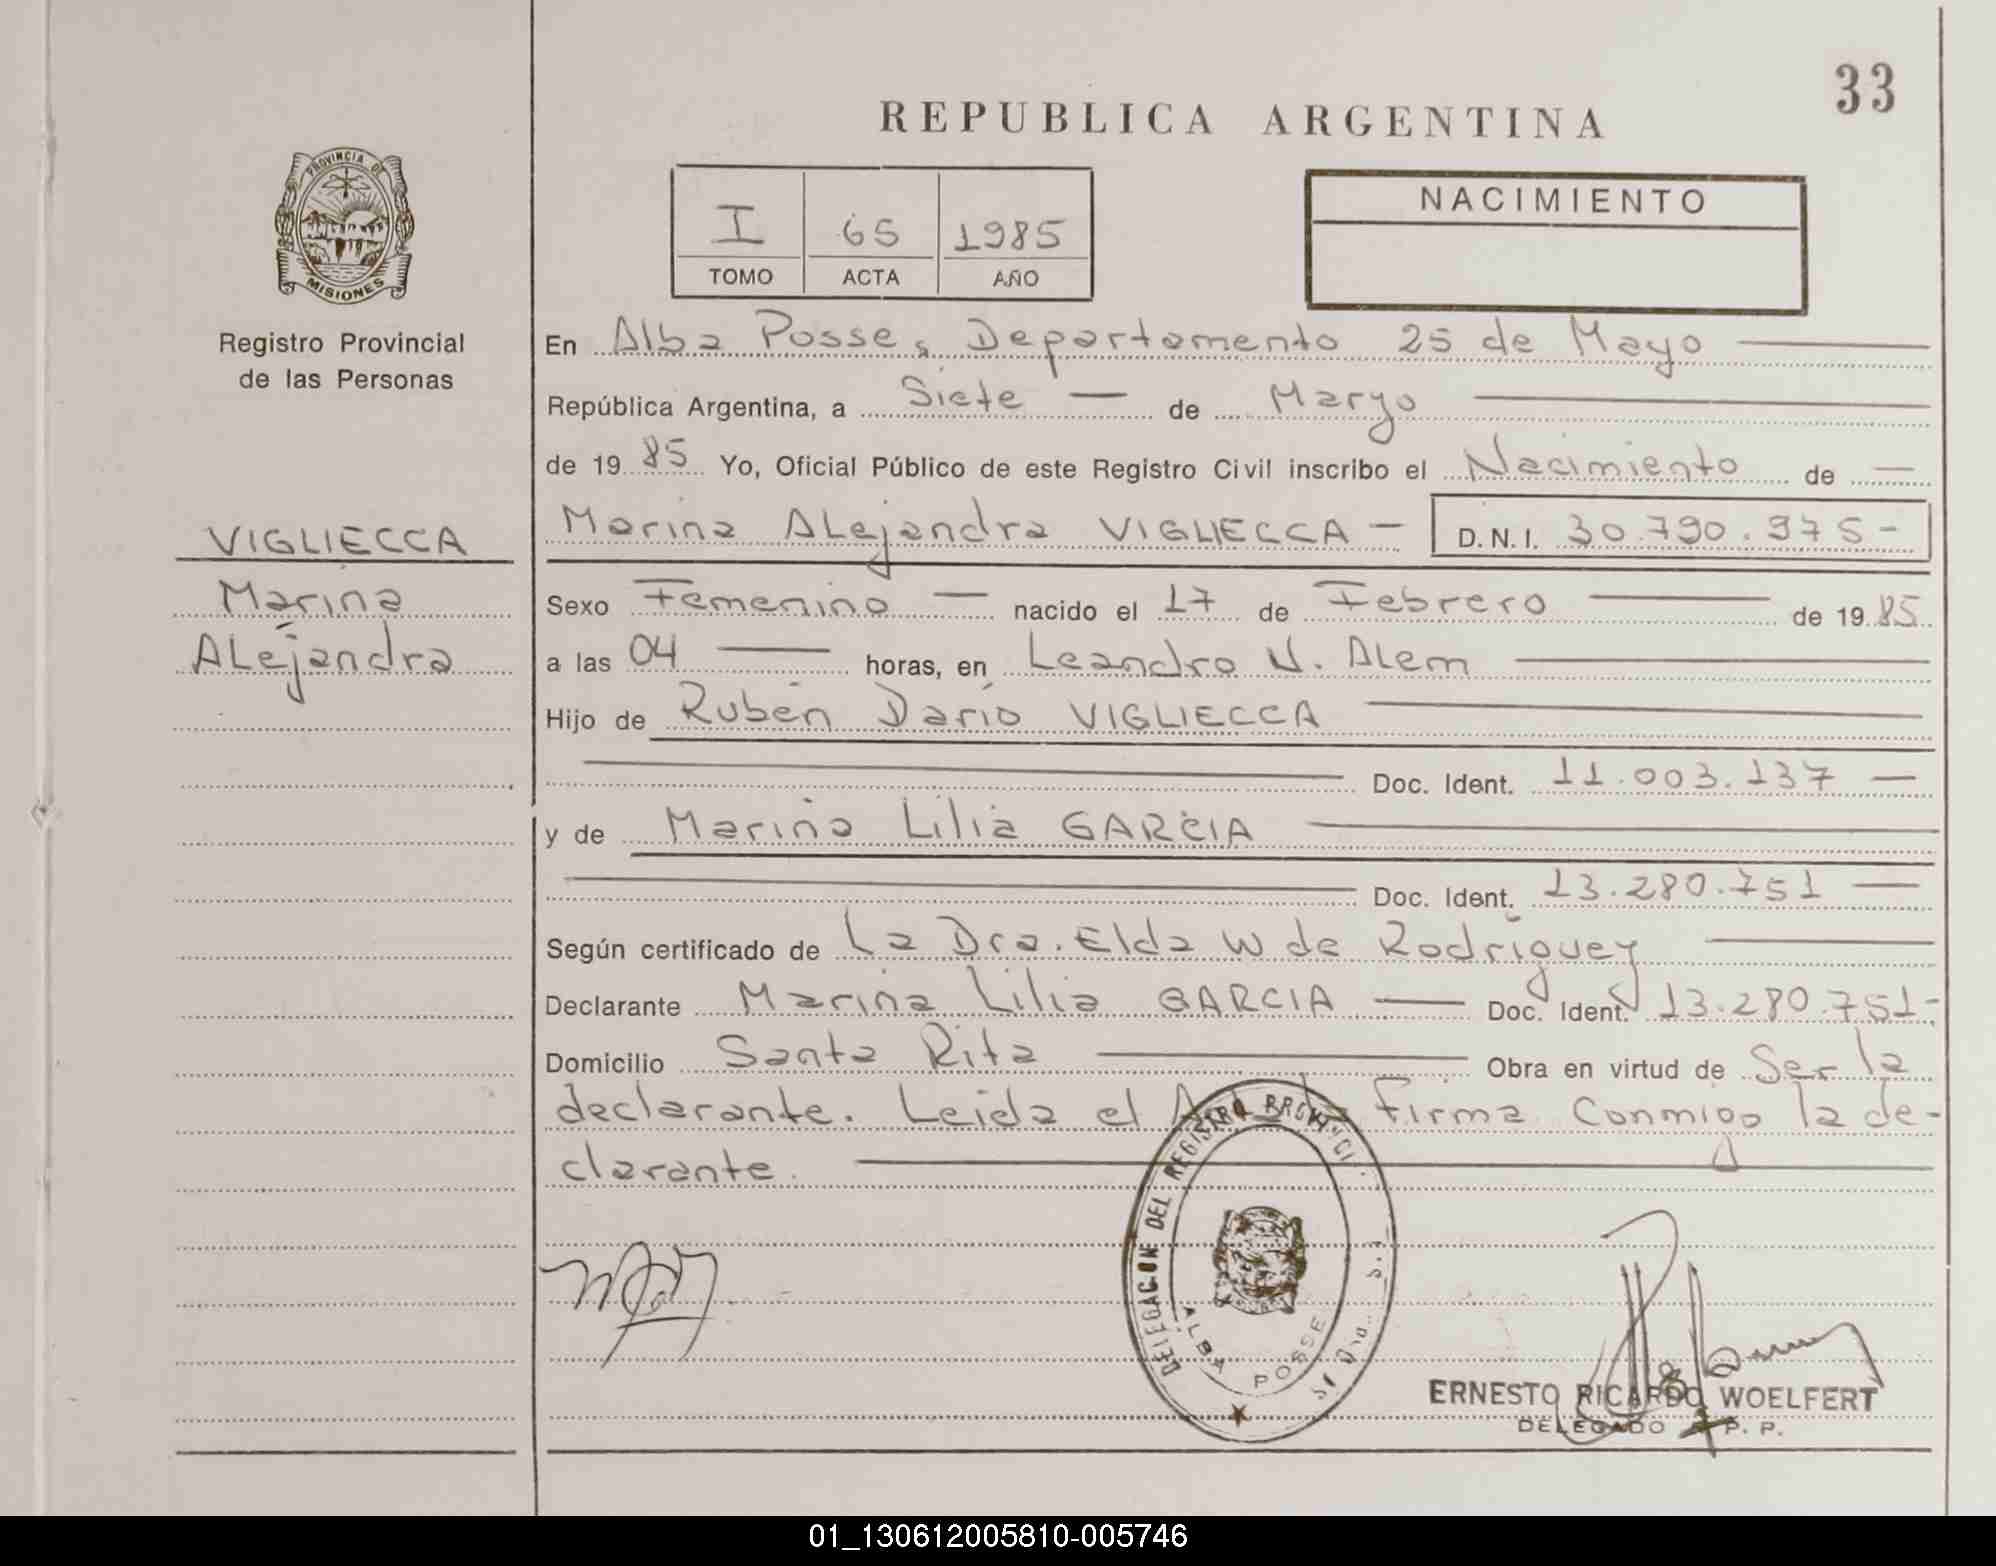 33
REPUBLICA ARGENTINA
PROVINCIA DE
MISIONES
Registro Provincial
de las Personas
I 65 1985
TOMO ACTA AÑO
NACIMIENTO
VIGLIECCA
Marina
ALejandra
En Alba Posse, Departamento 25 de Mayo
República Argentina, a Siete de Marzo
de 1985 Yo, Oficial Público de este Registro Civil inscribo el Nacimiento de
Marina ALejandra VIGLIECCA D.N.I. 30.790.975-
Sexo Femenino nacido el 17 de Febrero de 1985
a las 04 horas, en Leandro N. Alem
Hijo de Rubén Darío VIGLIECCA
Doc. Ident. 11.003.137
y de Marina Lilia GARCIA
Doc. Ident. 13.280.751
Según certificado de La Dra. Elda W de Rodríguez
Declarante Marina Lilia GARCIA Doc. Ident. 13.280.751-
Domicilio Santa Rita Obra en virtud de Ser la
declarante. Leida el Firma Conmigo la de-
clarante.
DELEGACION DEL REGISTRO
ALBA POSSE
ERNESTO RICARDO WOELFERT
DELEGADO P. P.
01_130612005810-005746